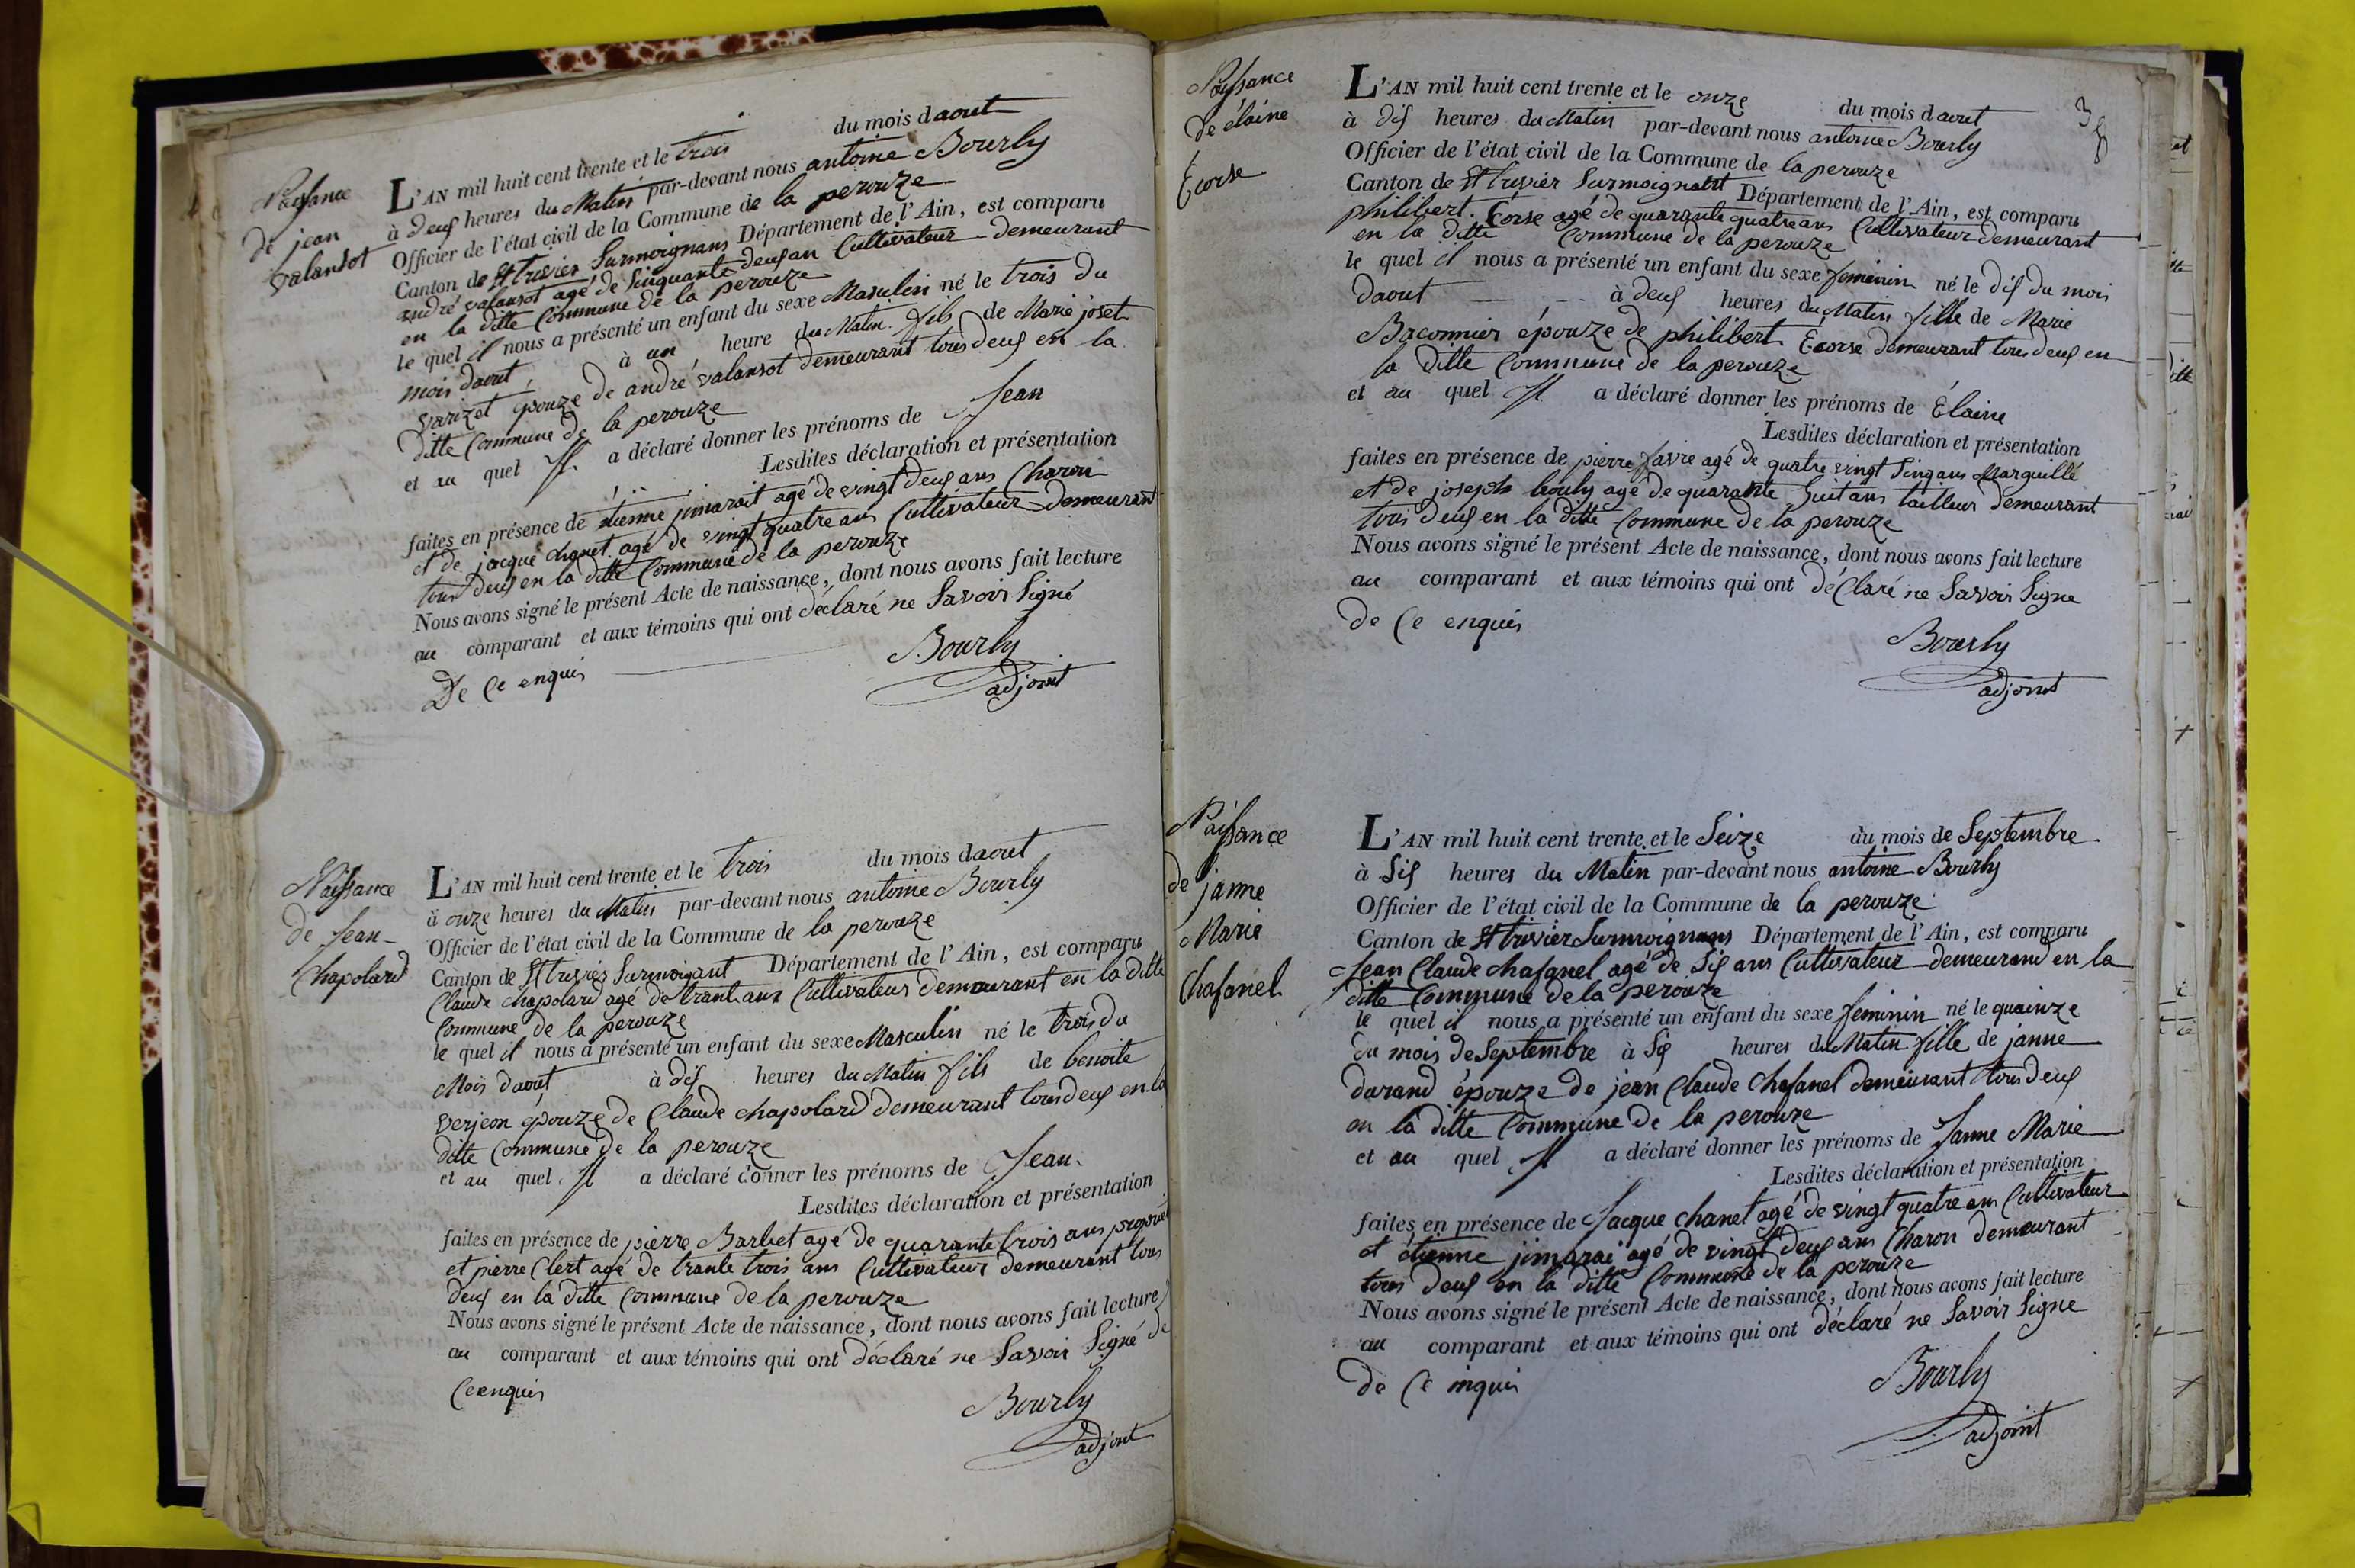 Naissance
de jean
valansot
L'AN mil huit cent trente et le trois du mois daout
à deux heures du Matin par-devant nous antoine Bourly
Officier de l'état civil de la Commune de la perouze
Canton de St trivier Surmoignans Département de l'Ain, est comparu
andré valansot agé de Sinquante deux an Cultivateur demeurant
en la ditte Commune de la perouze
le quel il nous a présenté un enfant du sexe Masculin né le trois du
mois daout à un heure du Matin fils de Marie joset
varizet épouze de andré valansot demeurant tous deux en la
ditte Commune de la perouze
et au quel Il a déclaré donner les prénoms de Jean
Lesdites déclaration et présentation
faites en présence de étienne jimarait agé de vingt deux ans Charon
et de jacque chanet agé de vingt quatre ans Cultivateur demeurant
tous deux en la ditte Commune de la perouze
Nous avons signé le présent Acte de naissance, dont nous avons fait lecture
au comparant et aux témoins qui ont déclaré ne Savoir Signé
De Ce enquis
Bourly
adjoint
Naissance
de Jean
Chapolard
L'AN mil huit cent trente et le trois du mois daout
à onze heures du Matin par-devant nous antoine Bourly
Officier de l'état civil de la Commune de la perouze
Canton de St trivier Surmoignant Département de l'Ain, est comparu
Claude chapolard agé de trante ans Cultivateur demeurant en la ditte
Commune de la perouze
le quel il nous a présenté un enfant du sexe Masculin né le trois du
Mois daout à dix heures du Matin fils de benoite
verjeon épouze de Claude chapolard demeurant tous deux en la
ditte Commune de la perouze
et au quel Il a déclaré donner les prénoms de Jean
Lesdites déclaration et présentation
faites en présence de pierre Barbet agé de quarante trois ans propriet
et pierre Clert agé de trante trois ans Cultivateur demeurant tous
deux en la ditte Commune de la perouze
Nous avons signé le présent Acte de naissance, dont nous avons fait lecture
au comparant et aux témoins qui ont déclaré ne Savoir Signé de
Ce enquis
Bourly
adjoint
Naissance
de élaine
Ecorse
38
L'AN mil huit cent trente et le onze du mois daout
à dix heures du Matin par-devant nous antoine Bourly
Officier de l'état civil de la Commune de la perouze
Canton de St trivier Surmoignant Département de l'Ain, est comparu
philibert Ecorse agé de quarante quatre ans Cultivateur demeurant
en la ditte Commune de la perouze
le quel il nous a présenté un enfant du sexe feminin né le dix du mois
daout à deux heures du Matin fille de Marie
Baconnier épouze de philibert Ecorse demeurant tous deux en
la ditte Commune de la perouze
et au quel Il a déclaré donner les prénoms de Élaine
Lesdites déclaration et présentation
faites en présence de pierre favre agé de quatre vingt Sinq ans Marguillé
et de joseph bouly agé de quarante huit ans tailleur demeurant
tous deux en la ditte Commune de la perouze
Nous avons signé le présent Acte de naissance, dont nous avons fait lecture
au comparant et aux témoins qui ont déClaré ne Savoir Signe
de Ce enquis
Bourly
adjoint
Naissance
de janne
Marie
Chafanel
L'AN mil huit cent trente et le Seize du mois de Septembre
à Six heures du Matin par-devant nous antoine Bourly
Officier de l'état civil de la Commune de la perouze
Canton de St trivier Surmoignans Département de l'Ain, est comparu
Jean Claude chafanel agé de Six ans Cultivateur demeurand en la
ditte Commune de la perouze
le quel il nous a présenté un enfant du sexe feminin né le quainze
du mois de Septembre à Six heures du Matin fille de janne
durand épouze de jean Claude Chafanel demeurant tous deux
en la ditte Commune de la perouze
et au quel Il a déclaré donner les prénoms de Janne Marie
Lesdites déclaration et présentation
faites en présence de Jacque chanet agé de vingt quatre ans Cultivateur
et étienne jimarai agé de vingt deux ans Charon demeurant
tous deux en la ditte Commune de la perouze
Nous avons signé le présent Acte de naissance, dont nous avons fait lecture
au comparant et aux témoins qui ont déclaré ne Savoir Signe
de Ce inquis
Bourly
adjoint